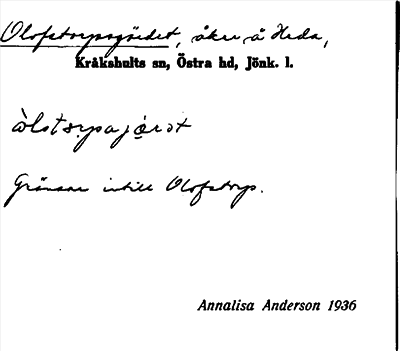 Olofstorpsgärdet, åker å Heda,
Kråkshults sn, Östra hd, Jönk. l.
òlstsrpajærət
Gränsar intill Olofstorp.
Annalisa Anderson 1936